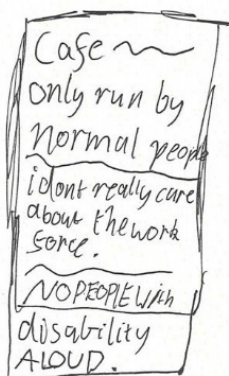 Cafe
only run by
Normal people
i dont really care
about the work
Force.
NO PEOPLE with
disability
ALOUD.